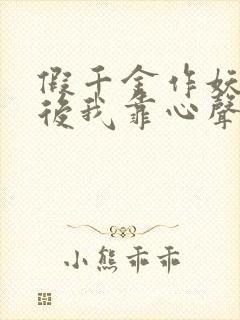 假千金作妖
後我靠心聲
小熊乖乖